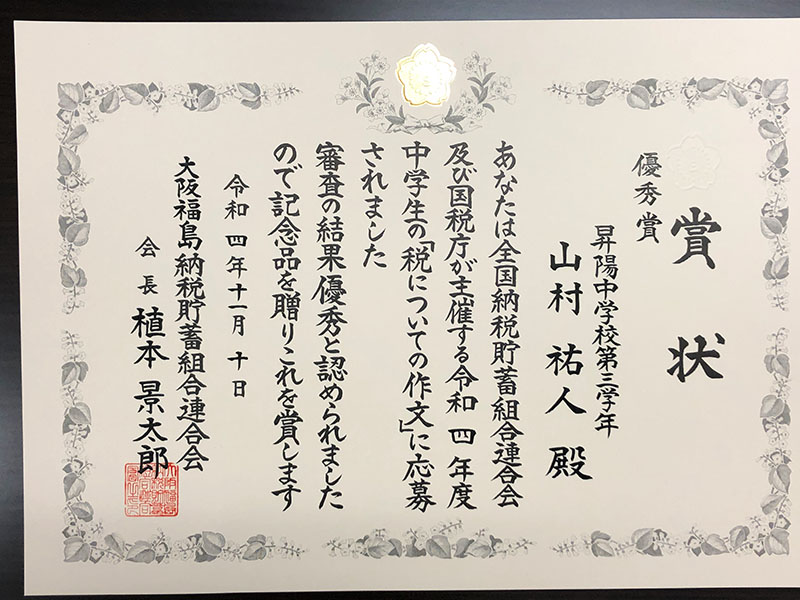 賞状
優秀賞
昇陽中学校第三学年
山村祐人殿
あなたは全国納税貯蓄組合連合会
及び国税庁が主催する令和四年度
中学生の「税についての作文」に応募
されました
審査の結果優秀と認められました
ので記念品を贈りこれを賞します
令和四年十一月十日
大阪福島納税貯蓄組合連合会
会長植本景太郎